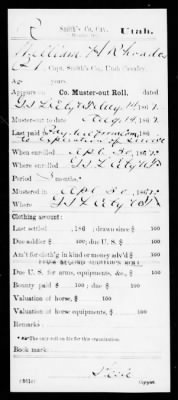 Smith's Co., Cav. Utah.
William H Rhoades
Capt. Smith's Co., Utah Cavalry.
Age years.
Appears on Co. Muster-out Roll, dated
G S L City U T Aug 14, 1862.
Muster-out to date Aug 14, 1862.
Last paid to
to expiration of Service
When enrolled Apl 30, 1862.
Where enrolled G S L City U T
Period 3 months.
Mustered in Apl 30, 1862.
Where G S L City U T
Clothing account:
Last settled , 186 ; drawn since $ 100
Due soldier $ 100; due U. S. $ 100
Am't for cloth'g in kind or money adv'd $ 100
Due U. S. for arms, equipments, &c., $ 100
Bounty paid $ 100; due $ 100
Valuation of horse, $ 100
Valuation of horse equipments, $ 100
Remarks:
*The only roll on file for this organization.
Book mark:
(361c) Copyist.